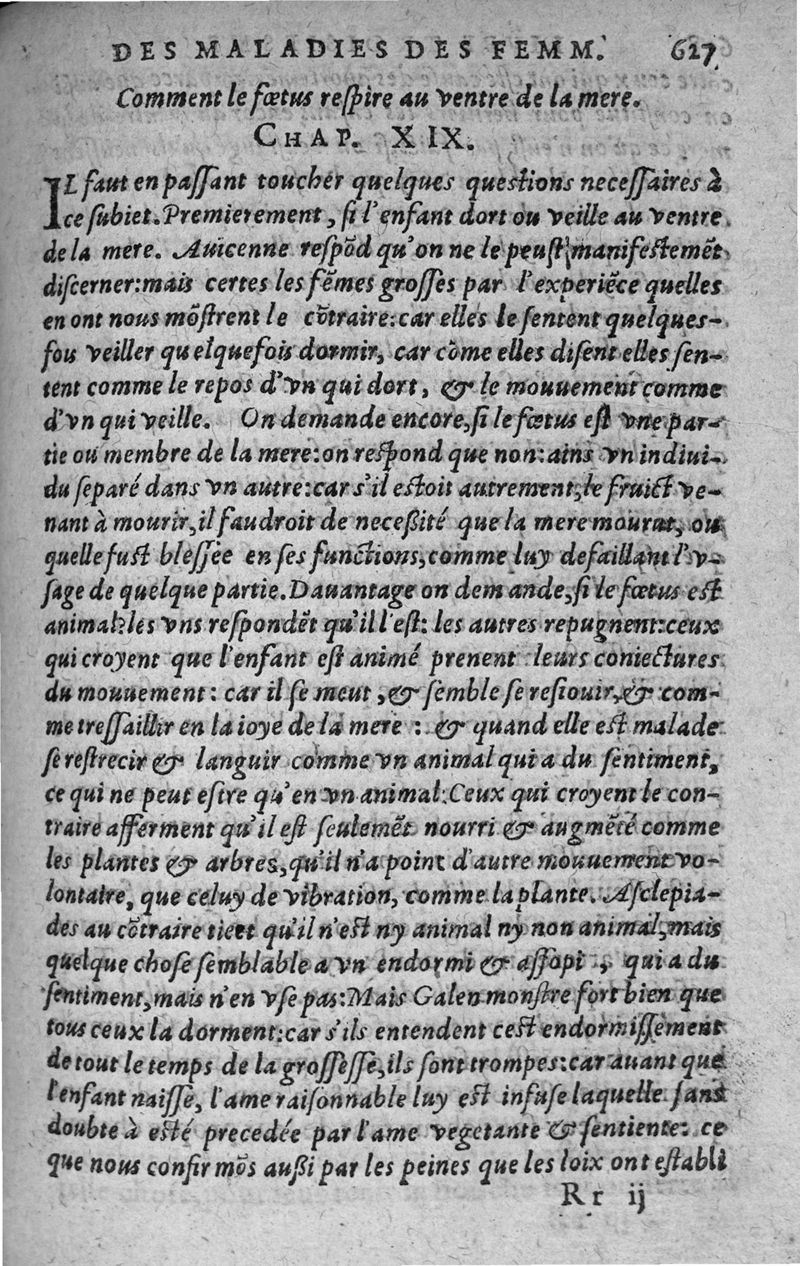 DES MALADIES DES FEMM. 627
Comment le fœtus respire au ventre de la mere.
CHAP. XIX.
IL faut en passant toucher quelques questions necessaires à
ce subiet. Premierement, si l'enfant dort ou veille au ventre
de la mere. Auicenne respõd qu'on ne le peust manifestemẽt
discerner: mais certes les fẽmes grosses par l'experiẽce quelles
en ont nous mõstrent le cõtraire: car elles le sentent quelques-
fou veiller quelquefois dormir, car cõme elles disent elles sen-
tent comme le repos d'vn qui dort, & le mouuement comme
d'vn qui veille. On demande encore, si le fœtus est vne par-
tie ou membre de la mere: on respond que non: ains vn indiui-
du separé dans vn autre: car s'il estoit autrement, le fruict ve-
nant à mourir, il faudroit de necessité que la mere mourut, ou
quelle fust blessee en ses functions, comme luy defaillant l'v-
sage de quelque partie. Dauantage on demande, si le fœtus est
animal: les vns respondẽt qu'il l'est: les autres repugnent: ceux
qui croyent que l'enfant est animé prenent leurs coniectures
du mouuement: car il se meut, & semble se resiouir, & com-
me tressaillir en la ioye de la mere: & quand elle est malade
se restrecir & languir comme vn animal qui a du sentiment,
ce qui ne peut estre qu'en vn animal: Ceux qui croyent le con-
traire afferment qu'il est seulemẽt nourri & augmẽté comme
les plantes & arbres, qu'il n'a point d'autre mouuement vo-
lontaire, que celuy de vibration, comme la plante. Asclepia-
des au cõtraire tient qu'il n'est ny animal ny non animal, mais
quelque chose semblable a vn endormi & assopi, qui a du
sentiment, mais n'en vse pas: Mais Galen monstre fort bien que
tous ceux la dorment: car s'ils entendent cest endormissement
de tout le temps de la grossesse, ils sont trompes: car auant que
l'enfant naisse, l'ame raisonnable luy est infuse laquelle sans
doubte à esté precedée par l'ame vegetante & sentiente: ce
que nous confirmõs aussi par les peines que les loix ont establi
Rr ij